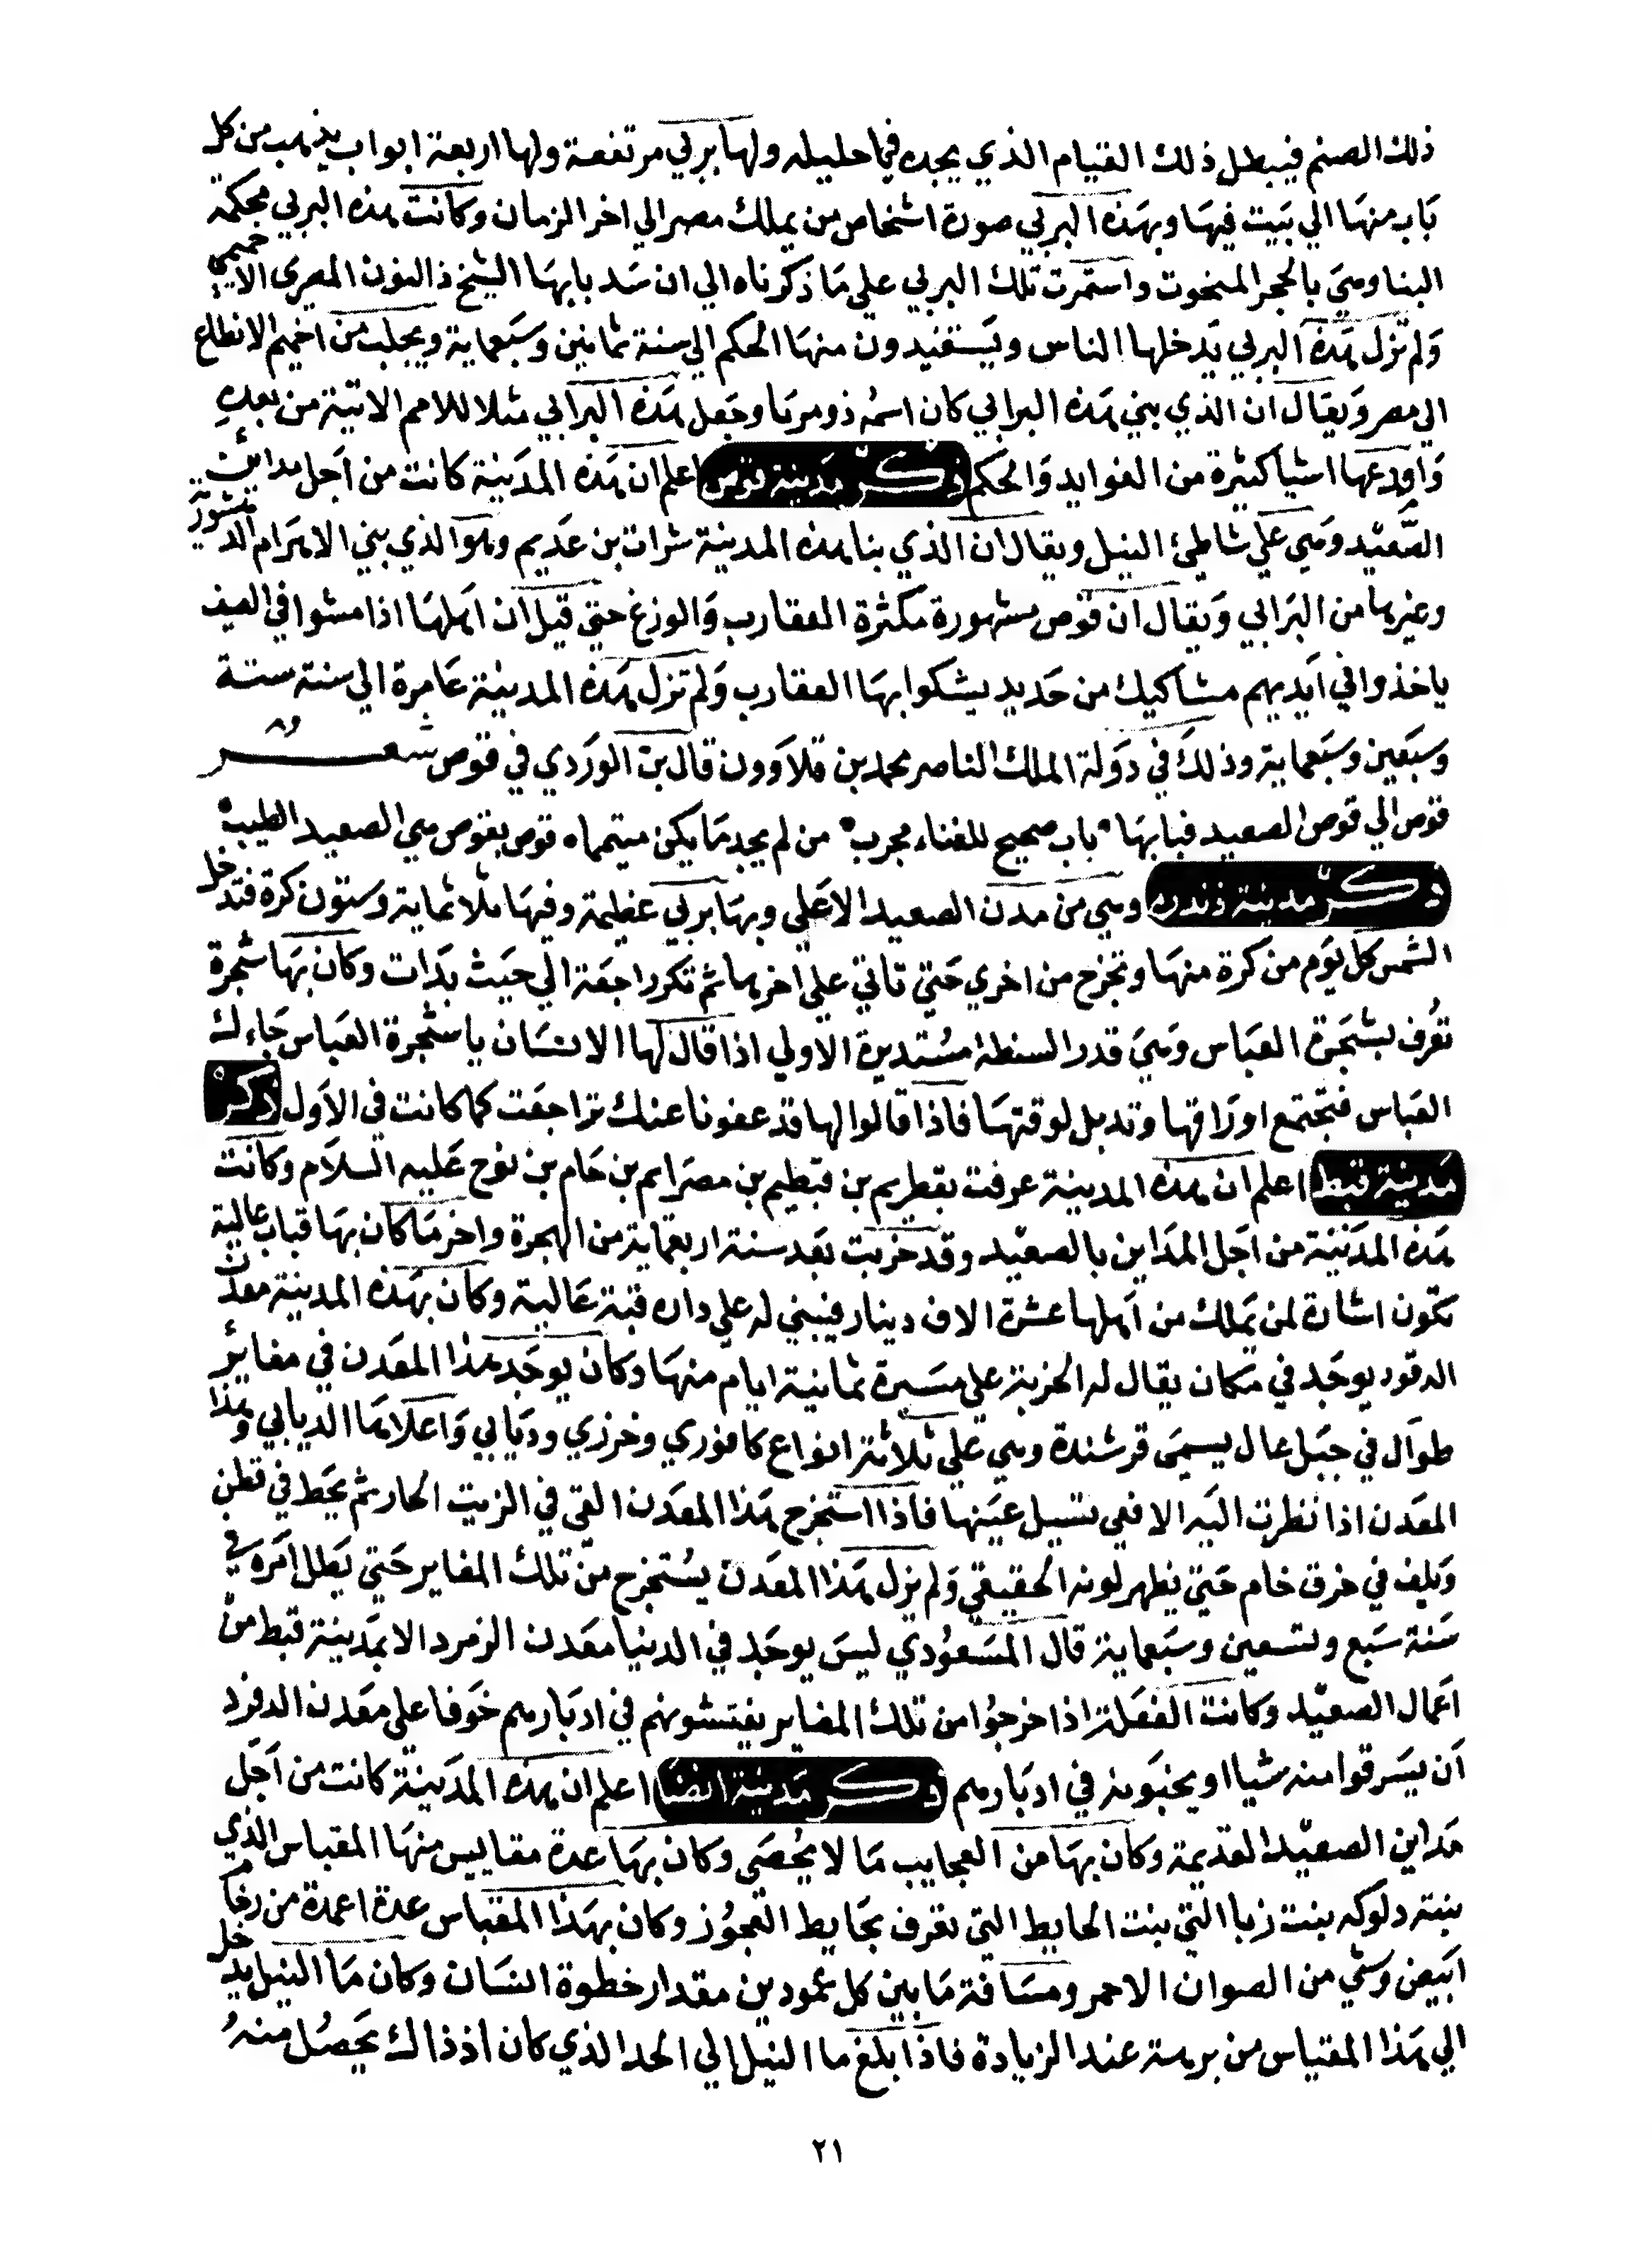 ذلك الصنم فيبطل ذلك القيام الذي يجده في احليله ولها بربي مرتفعة ولها اربعة ابواب يذهب من كل
باب منها الي بيت فيها وبهذه البربي صورة اشخاص من يملك مصر الي اخر الزمان وكانت هذه البربي محكمة
البنا وهي بالحجر المنحوت واستمرت تلك البربي علي ما ذكرناه الي ان سد بابها الشيخ ذا النون المصري الاخميمي
ولم تزل هذه البربي يدخلها الناس ويستفيدون منها الحكم الي سنة ثمانين وسبعماية ويجلب من اخميم الانطاع
الي مصر ويقال ان الذي بني هذه البرابي كان اسمه ذومريا وجعل هذه البرابي مثلا للامم الاتية من بعده
واودعها اشيا كثيرة من الفوايد والحكم ذكر مدينة قوص اعلم ان هذه المدينة كانت من اجل مداين
الصعيد وهي علي شاطئ النيل ويقال ان الذي بنا هذه المدينة شرات بن عديم وهو الذي بني الاهرام الدهشورية
وغيرها من البرابي ويقال ان قوص مشهورة بكثرة العقارب والوزغ حتي قيل ان اهلها اذا مشوا في الصيف
ياخذوا في ايديهم مشاكيك من حديد يشكوا بها العقارب ولم تزل هذه المدينة عامرة الي سنة ستة
وسبعين وسبعماية وذلك في دولة الملك الناصر محمد بن قلاوون قال بن الوردي في قوص شعر
قوص الي قوص الصعيد فبابها ° باب صحيح للغناء مجرب ° من لم يجد ما يكن متيمماه قوص بقوص هي الصعيد الطيب °
ذكر مدينة دندره وهي من مدن الصعيد الاعلي وبها بربي عظيمة وفيها ثلاثماية وستون كرة فتدخل
الشمس كل يوم من كرة منها وتخرج من اخري حتي تاتي علي اخرها ثم تكر راجعة الي حيث بدات وكان بها شجرة
تعرف بشجرة العباس وهي قدر السنطة مستديرة الاولي اذا قال لها الانسان يا شجرة العباس جاءك
العباس فتجتمع اوراقها وتدبل لوقتها فاذا قالوا لها قد عفونا عنك تراجعت كما كانت في الاول ذكر
مدينة قبط اعلم ان هذه المدينة عرفت بقطريم بن قبطيم بن مصرايم بن حام بن نوح عليه السلام وكانت
هذه المدينة من اجل المداين بالصعيد وقد خربت بعد سنة اربعماية من الهجرة واخر ما كان بها قباب عالية
تكون اشارة لمن يملك من اهلها عشرة الاف دينار فيبني له علي داره قبة عالية وكان بهذه المدينة معدن
الدقود يوجد في مكان يقال له الخربة علي مسيرة ثمانية ايام منها وكان يوجد هذا المعدن في مغاير
طوال في جبل عال يسمي قرشندة وهي علي ثلاثة انواع كافوري وخرزي وديابي واعلاها الديابي وهذا
المعدن اذا نظرت اليه الافعي تسيل عينها فاذا استخرج هذا المعدن القي في الزيت الحار ثم يحط في قطن
ويلف في خرق خام حتي يظهر لونه الحقيقي ولم يزل هذا المعدن يستخرج من تلك المغاير حتي بطل امره في
سنة سبع وتسعين وسبعماية قال المسعودي ليس يوجد في الدنيا معدن الزمرد الا بمدينة قبط من
اعمال الصعيد وكانت الفعلة اذا خرجوا من تلك المغاير يفتشونهم في ادبارهم خوفا علي معدن الدقود
ان يسرقوا منه شيا او يخبونه في ادبارهم ذكر مدينة انصنا اعلم ان هذه المدينة كانت من اجل
مداين الصعيد القديمة وكان بها من العجايب ما لا يحصي وكان بها عدة مقاييس منها المقياس الذي
بنته دلوكه بنت زبا التي بنت الحايط التي تعرف بحايط العجوز وكان بهذا المقياس عدة اعمدة من رخام
ابيض وشي من الصوان الاحمر ومسافة ما بين كل عمودين مقدار خطوة انسان وكان ما النيل يدخل
الي هذا المقياس من بربسة عند الزيادة فاذا بلغ ما النيل الي الحد الذي كان اذ ذاك يحصل منه
٢١